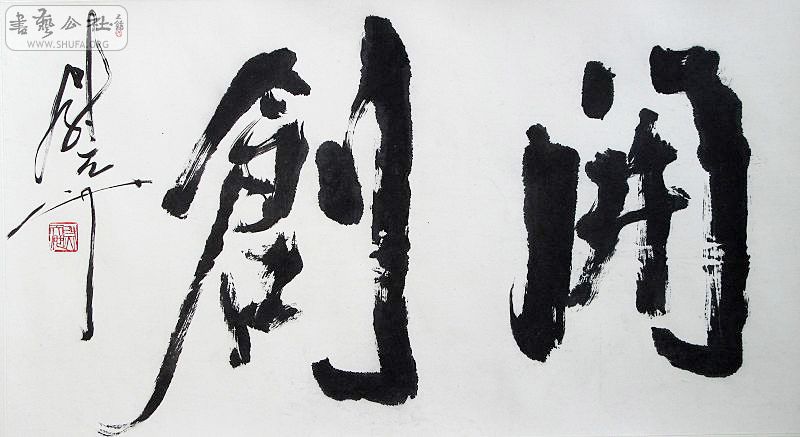 開創
書藝公社
WWW.SHUFA.ORG